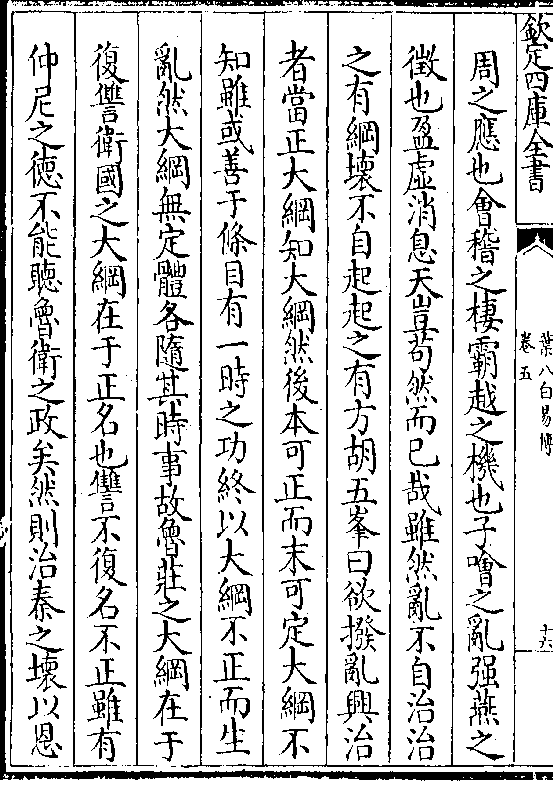 欽定四庫全書
葉八白易傳
卷五
十六
周之應也會稽之棲霸越之機也子噲之亂强燕之
徵也盈虛消息天豈苟然而已哉雖然亂不自治治
之有綱壞不自起起之有方胡五峯曰欲撥亂興治
者當正大綱知大綱然後本可正而末可定大綱不
知雖或善于條目有一時之功終以大綱不正而生
亂然大綱無定體各隨其時事故魯莊之大綱在于
復讐衛國之大綱在于正名也讐不復名不正雖有
仲尼之德不能聽魯衛之政矣然則治秦之壞以恩